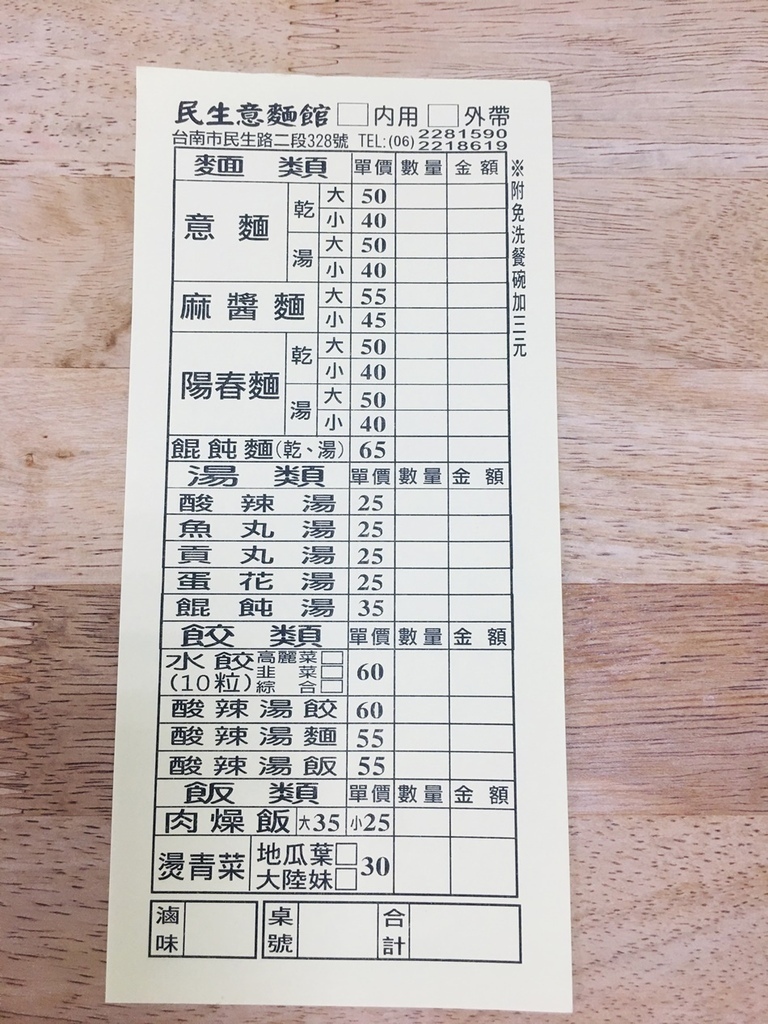 民生意麵館 □內用 □外帶
台南市民生路二段328號 TEL:(06) 2281590
2218619
※附免洗餐碗加三元
麵類 單價 數量 金額
意麵 乾 大 50
小 40
湯 大 50
小 40
麻醬麵 大 55
小 45
陽春麵 乾 大 50
小 40
湯 大 50
小 40
餛飩麵(乾、湯) 65
湯類 單價 數量 金額
酸辣湯 25
魚丸湯 25
貢丸湯 25
蛋花湯 25
餛飩湯 35
餃類 單價 數量 金額
水餃(10粒) 高麗菜□ 60
韭菜□
綜合□
酸辣湯餃 60
酸辣湯麵 55
酸辣湯飯 55
飯類 單價 數量 金額
肉燥飯 大35 小25
燙青菜 地瓜葉□ 30
大陸妹□
滷味 桌號 合計